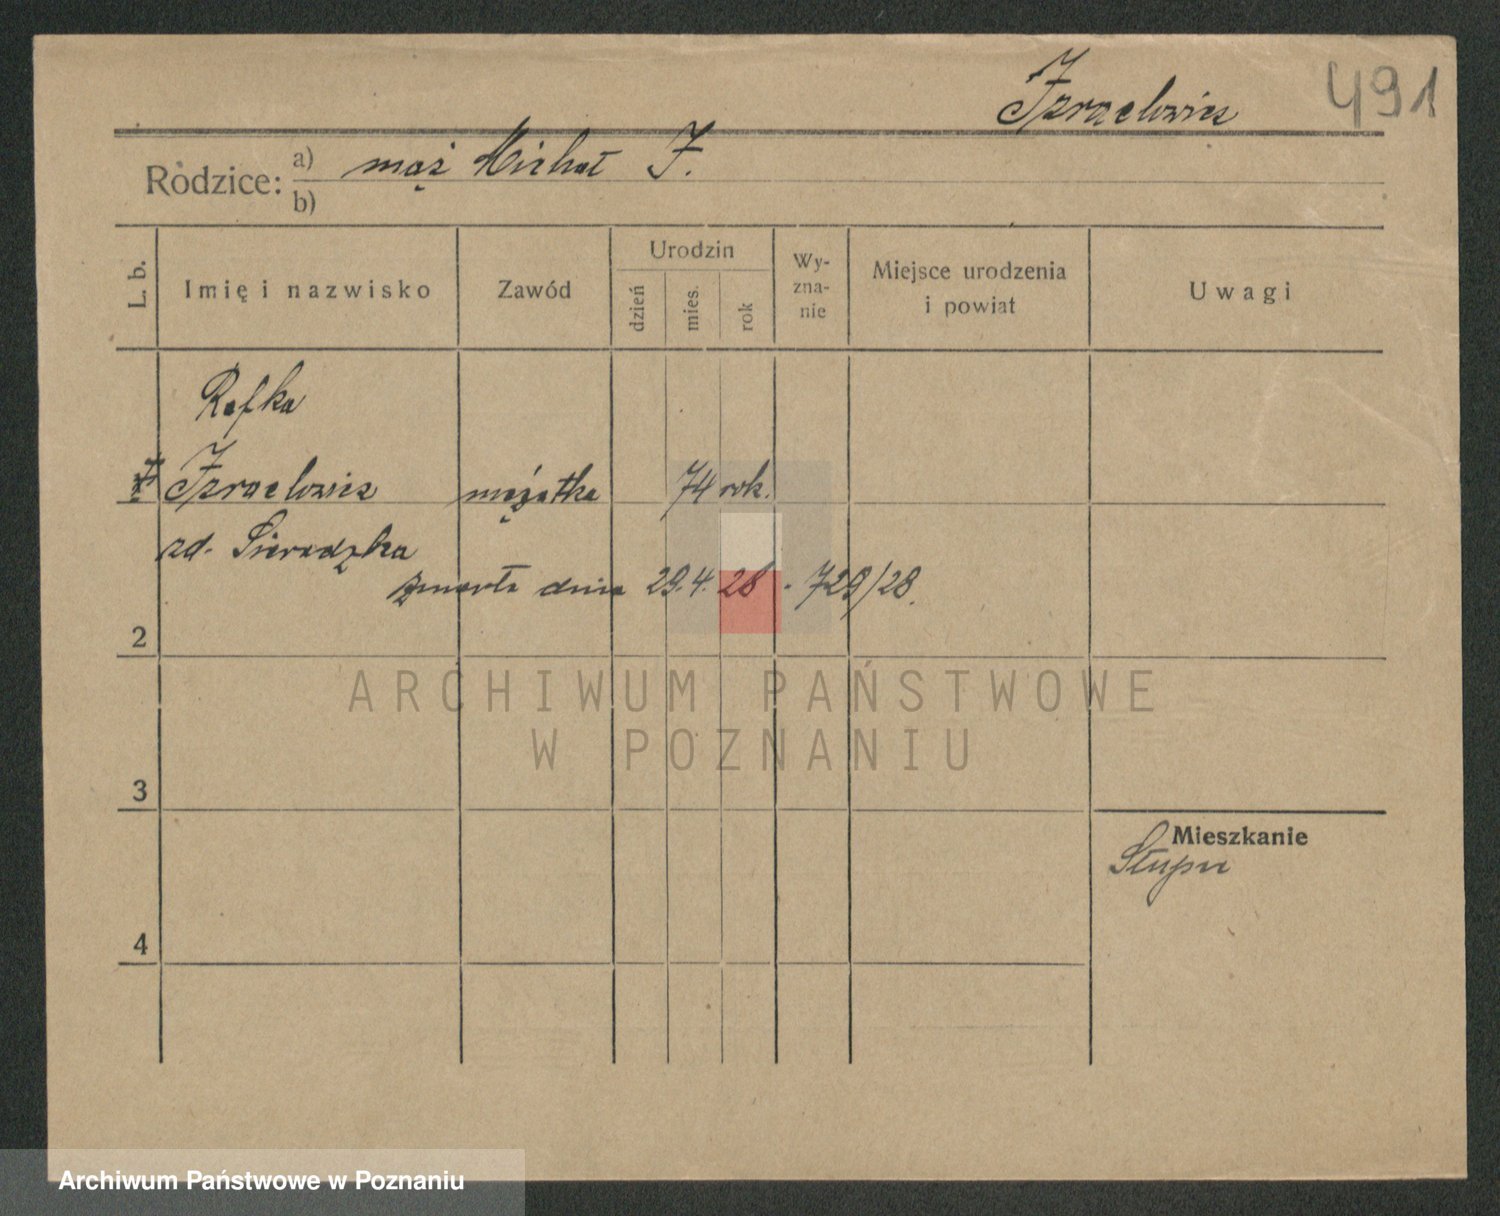 Izraelowicz 491
Rodzice: a) mąż Michał I.
b)
L. b.
Imię i nazwisko
Zawód
Urodzin
dzień
mies.
rok
Wy-
zna-
nie
Miejsce urodzenia
i powiat
Uwagi
Rafka
Izraelowicz mężatka 74 rok.
zd. Sieradzka
zmarła dnia 29.4.28 - 729/28.
2
3
4
Mieszkanie
Słupca
ARCHIWUM PAŃSTWOWE
W POZNANIU
Archiwum Państwowe w Poznaniu